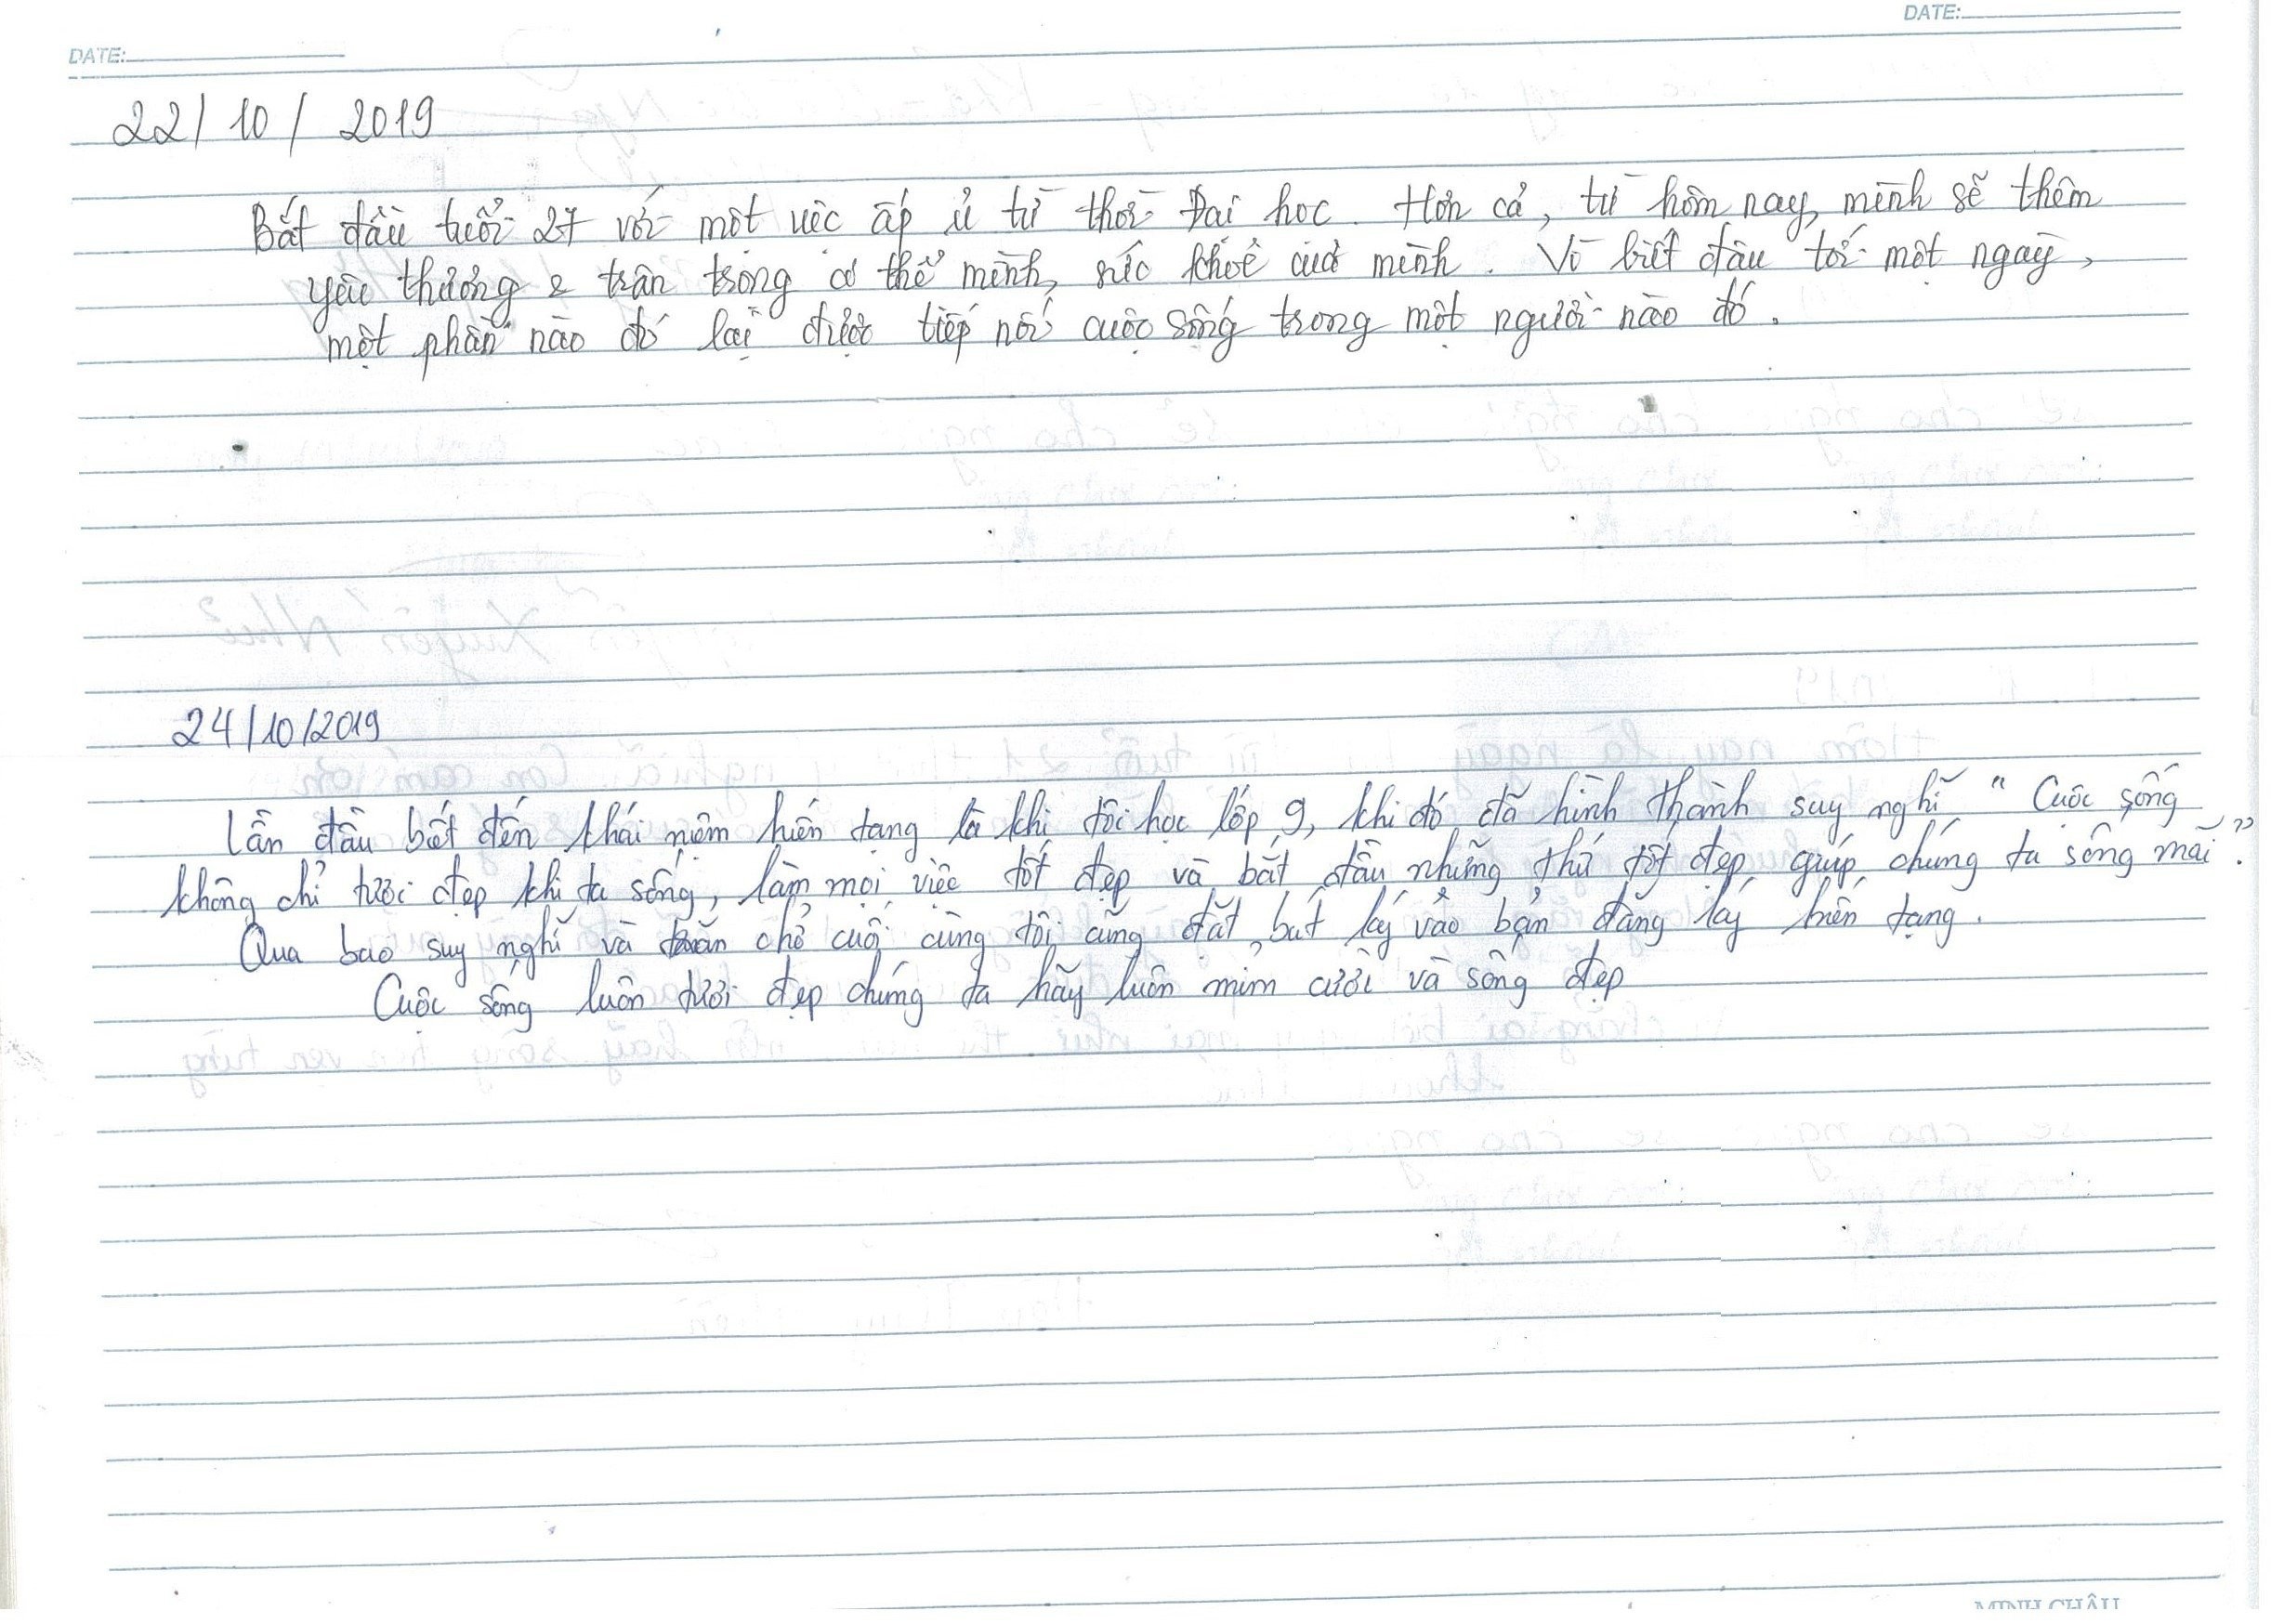 DATE:
DATE:
22/10/2019
Bắt đầu tuổi 27 với một việc ấp ủ từ thời Đại học. Hơn cả, từ hôm nay, mình sẽ thêm
yêu thương & trân trọng cơ thể mình, sức khoẻ của mình. Vì biết đâu tới một ngày,
một phần nào đó lại được tiếp nối cuộc sống trong một người nào đó.
24/10/2019
Lần đầu biết đến khái niệm hiến tạng là khi tôi học lớp 9, khi đó đã hình thành suy nghĩ "Cuộc sống
không chỉ tươi đẹp khi ta sống, làm mọi việc tốt đẹp và bắt đầu những thứ tốt đẹp giúp chúng ta sống mãi".
Qua bao suy nghĩ và trăn chở cuối cùng tôi cũng đặt bút ký vào bản đăng ký hiến tạng.
Cuộc sống luôn tươi đẹp chúng ta hãy luôn mỉm cười và sống đẹp
MINH CHÂU